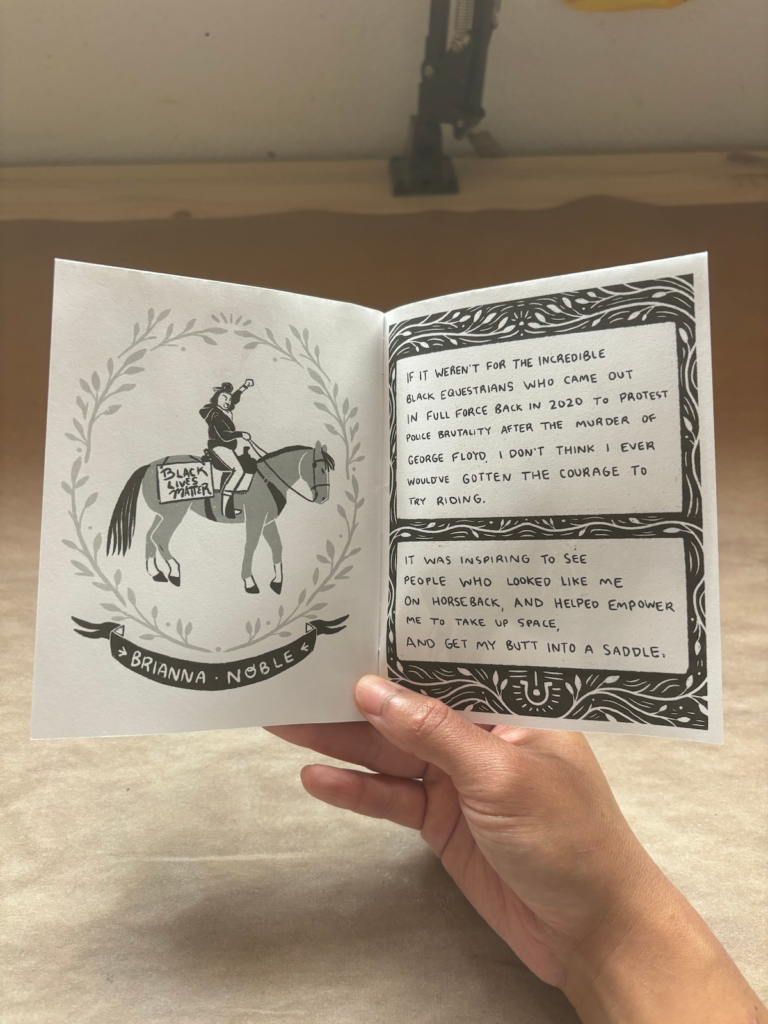 BLACK
LIVES
MATTER
BRIANNA · NOBLE
IF IT WEREN'T FOR THE INCREDIBLE
BLACK EQUESTRIANS WHO CAME OUT
IN FULL FORCE BACK IN 2020 TO PROTEST
POLICE BRUTALITY AFTER THE MURDER OF
GEORGE FLOYD, I DON'T THINK I EVER
WOULD'VE GOTTEN THE COURAGE TO
TRY RIDING.
IT WAS INSPIRING TO SEE
PEOPLE WHO LOOKED LIKE ME
ON HORSEBACK, AND HELPED EMPOWER
ME TO TAKE UP SPACE,
AND GET MY BUTT INTO A SADDLE.